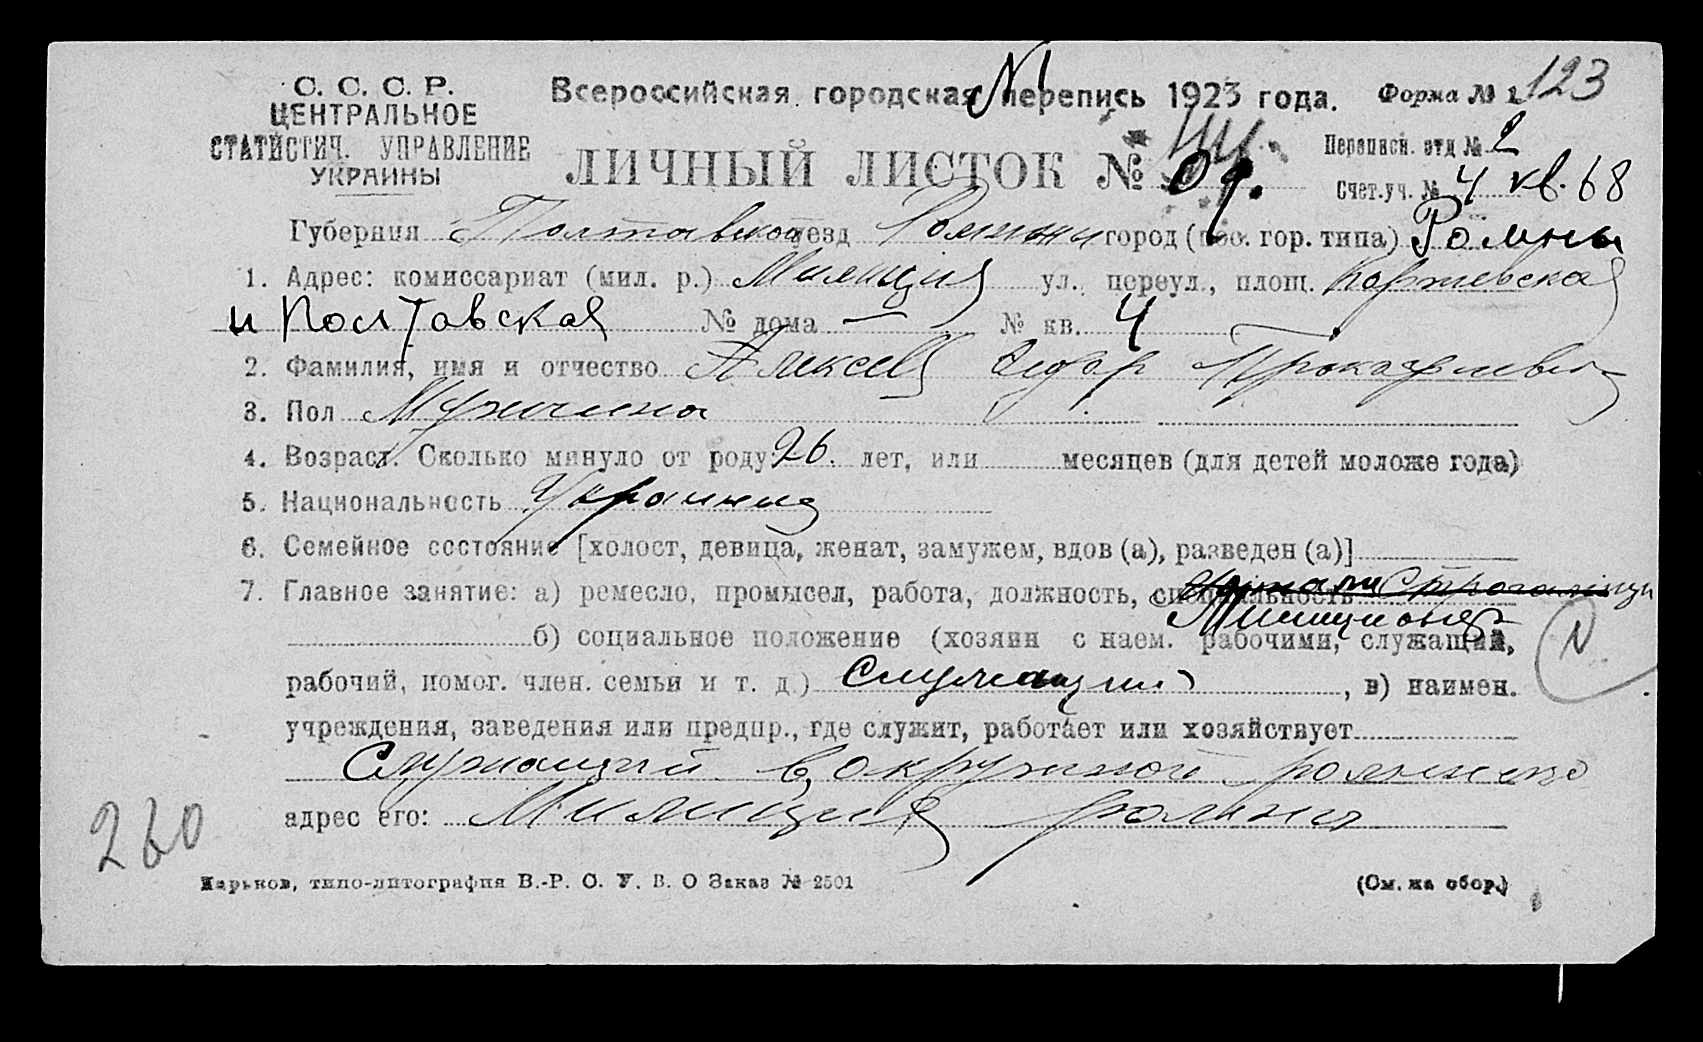 С. С. С. Р.
ЦЕНТРАЛЬНОЕ
СТАТИСТИЧ. УПРАВЛЕНИЕ
УКРАИНЫ
Всероссийская городская перепись 1923 года.
Форма № 1 123
ЛИЧНЫЙ ЛИСТОК №
Переписн. отд № 2
Счет.уч. № 4 кв. 68
Губерния Полтавской уезд Ромны город (пос. гор. типа) Ромны
1. Адрес: комиссариат (мил. р.) Милиция ул., переул., площ. Коржевская
и Полтавская № дома — № кв. 4
2. Фамилия, имя и отчество Алексеев
3. Пол Мужчина
4. Возраст. Сколько минуло от роду 26 лет, или месяцев (для детей моложе года)
5. Национальность Украинец
6. Семейное состояние [холост, девица, женат, замужем, вдов (а), разведен (а)]
7. Главное занятие: а) ремесло, промысел, работа, должность, специальность
Милиционер
б) социальное положение (хозяин с наем. рабочими, служащий,
рабочий, помог. член. семьи и т. д.) Служащий, в) наимен.
учреждения, заведения или предпр., где служит, работает или хозяйствует
Служащий в окружной
адрес его: Милиция Ромны
260
Харьков, типо-литография В.-Р. С. У. В. О Заказ № 2501
(См. на обор.)